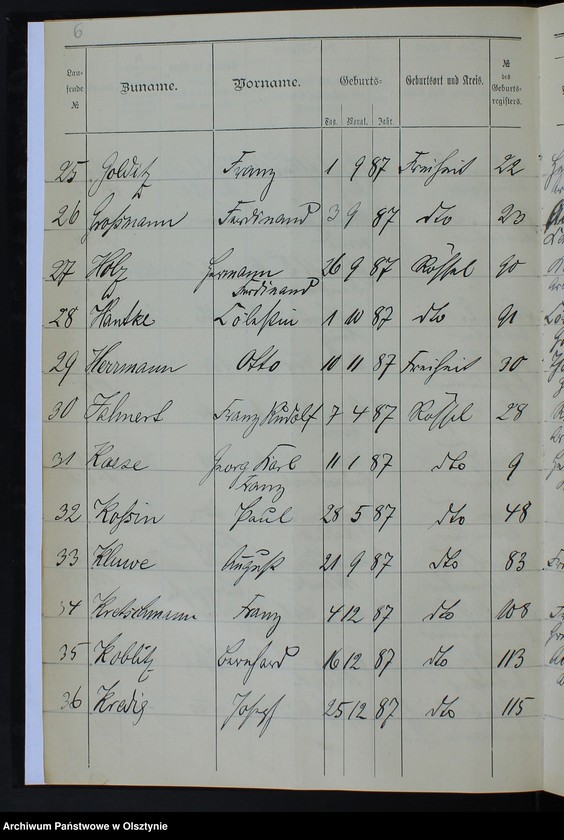 6
Lau-
fende
№
Zuname.
Vorname.
Geburts-
Tag. Monat. Jahr.
Geburtsort und Kreis.
№
des
Geburts-
registers.
25 Golditz Franz 1 9 87 Freiheit 22
26 Großmann Ferdinand 3 9 87 dto 23
27 Holz Hermann 26 9 87 Rössel 90
Ferdinand
28 Hantke Cölestin 1 10 87 dto 91
29 Herrmann Otto 10 11 87 Freiheit 30
30 Jahnert Franz Rudolf 7 4 87 Rössel 28
31 Kaese Georg Karl 11 1 87 dto 9
Franz
32 Koßin Paul 28 5 87 dto 48
33 Kluwe August 21 9 87 dto 83
34 Kretschmann Franz 4 12 87 dto 108
35 Koblitz Bernhard 16 12 87 dto 113
36 Kredig Josef 25 12 87 dto 115
Archiwum Państwowe w Olsztynie